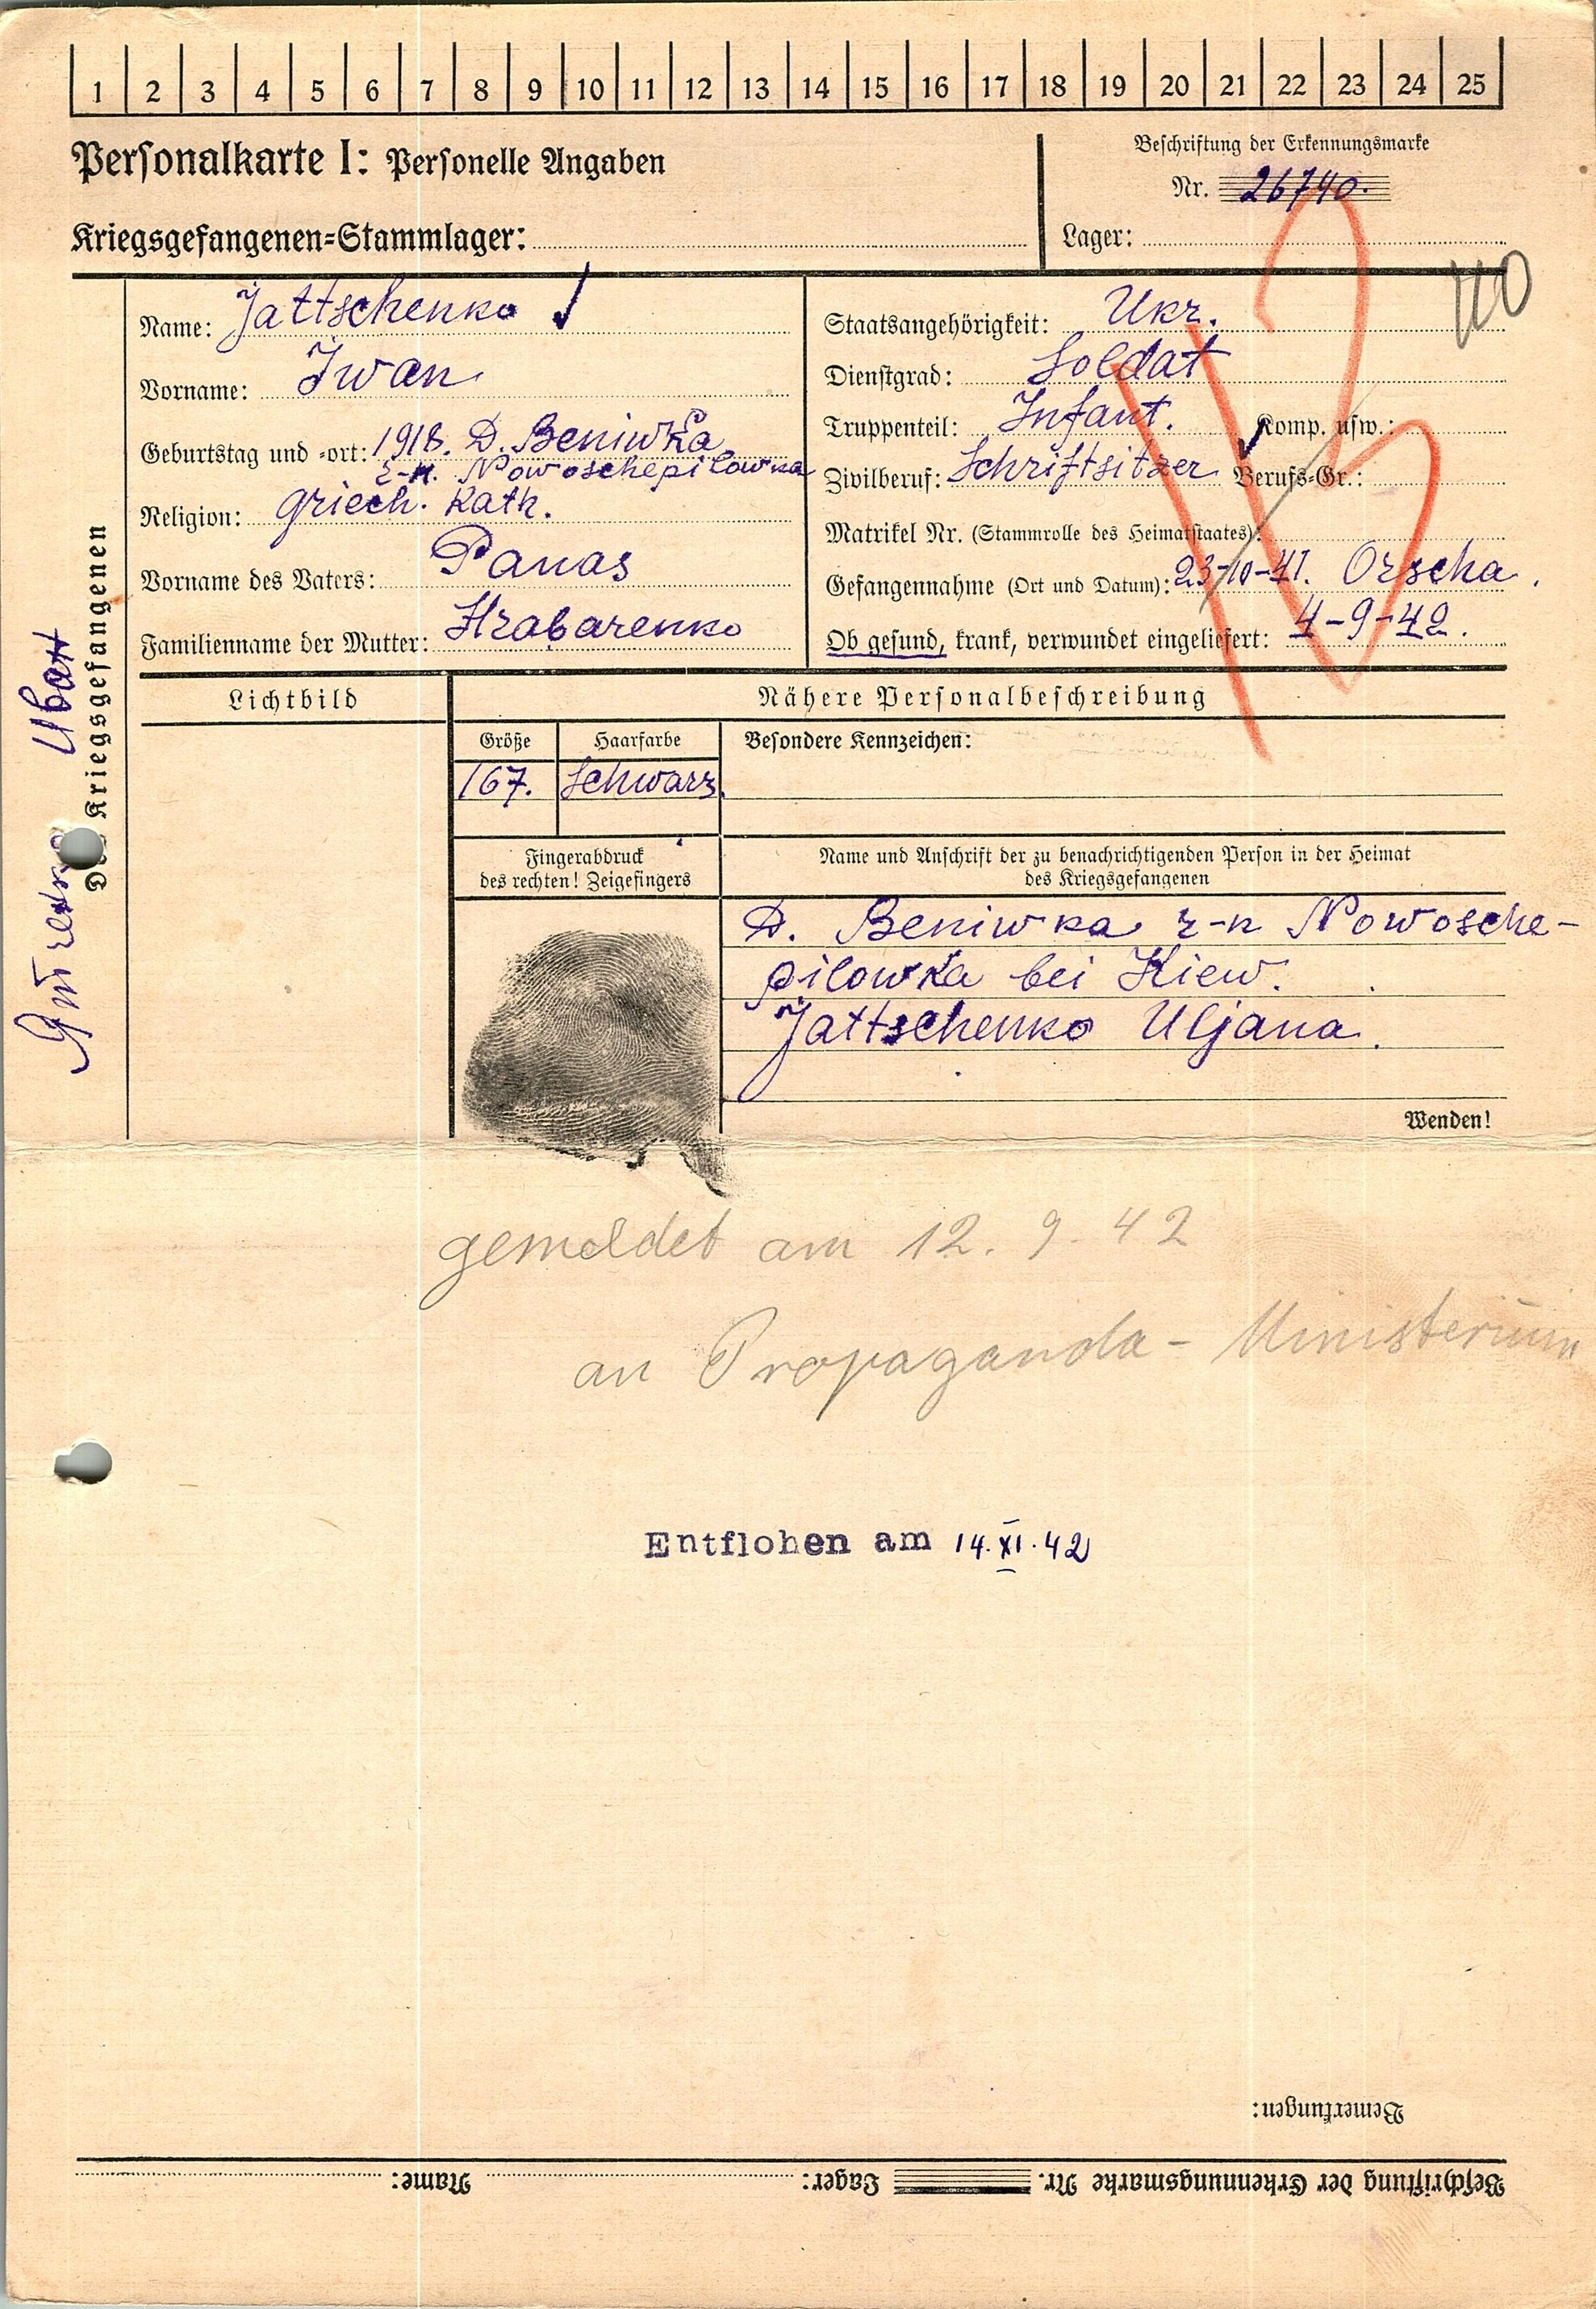 1 2 3 4 5 6 7 8 9 10 11 12 13 14 15 16 17 18 19 20 21 22 23 24 25
Personalkarte I: Personelle Angaben
Beschriftung der Erkennungsmarke
Nr. 26740.
Kriegsgefangenen-Stammlager:
Lager:
Name: Jattschenko
Vorname: Iwan
Geburtstag und -ort: 1918. D. Beniwka
r-n. Nowoschepilowka
Religion: Griech. Kath.
Vorname des Vaters: Panas
Familienname der Mutter: Hrabarenko
Staatsangehörigkeit: Ukr.
Dienstgrad: Soldat
Truppenteil: Infant. Komp. usw.:
Zivilberuf: Schriftsitzer Berufs-Gr.:
Matrikel Nr. (Stammrolle des Heimatstaates):
Gefangennahme (Ort und Datum): 23-10-41. Orscha.
Ob gesund, krank, verwundet eingeliefert: 4-9-42.
Des Kriegsgefangenen
Lichtbild
Nähere Personalbeschreibung
Größe
Haarfarbe
Besondere Kennzeichen:
167.
Schwarz.
Fingerabdruck
des rechten! Zeigefingers
Name und Anschrift der zu benachrichtigenden Person in der Heimat
des Kriegsgefangenen
D. Beniwka r-n Nowosche-
pilowka bei Kiew.
Jattschenko Uljana.
Wenden!
gemeldet am 12. 9. 42
an Propaganda-Ministerium
Entflohen am 14.XI.42
Bemerkungen:
Beschriftung der Erkennungsmarke Nr. Lager: Name: